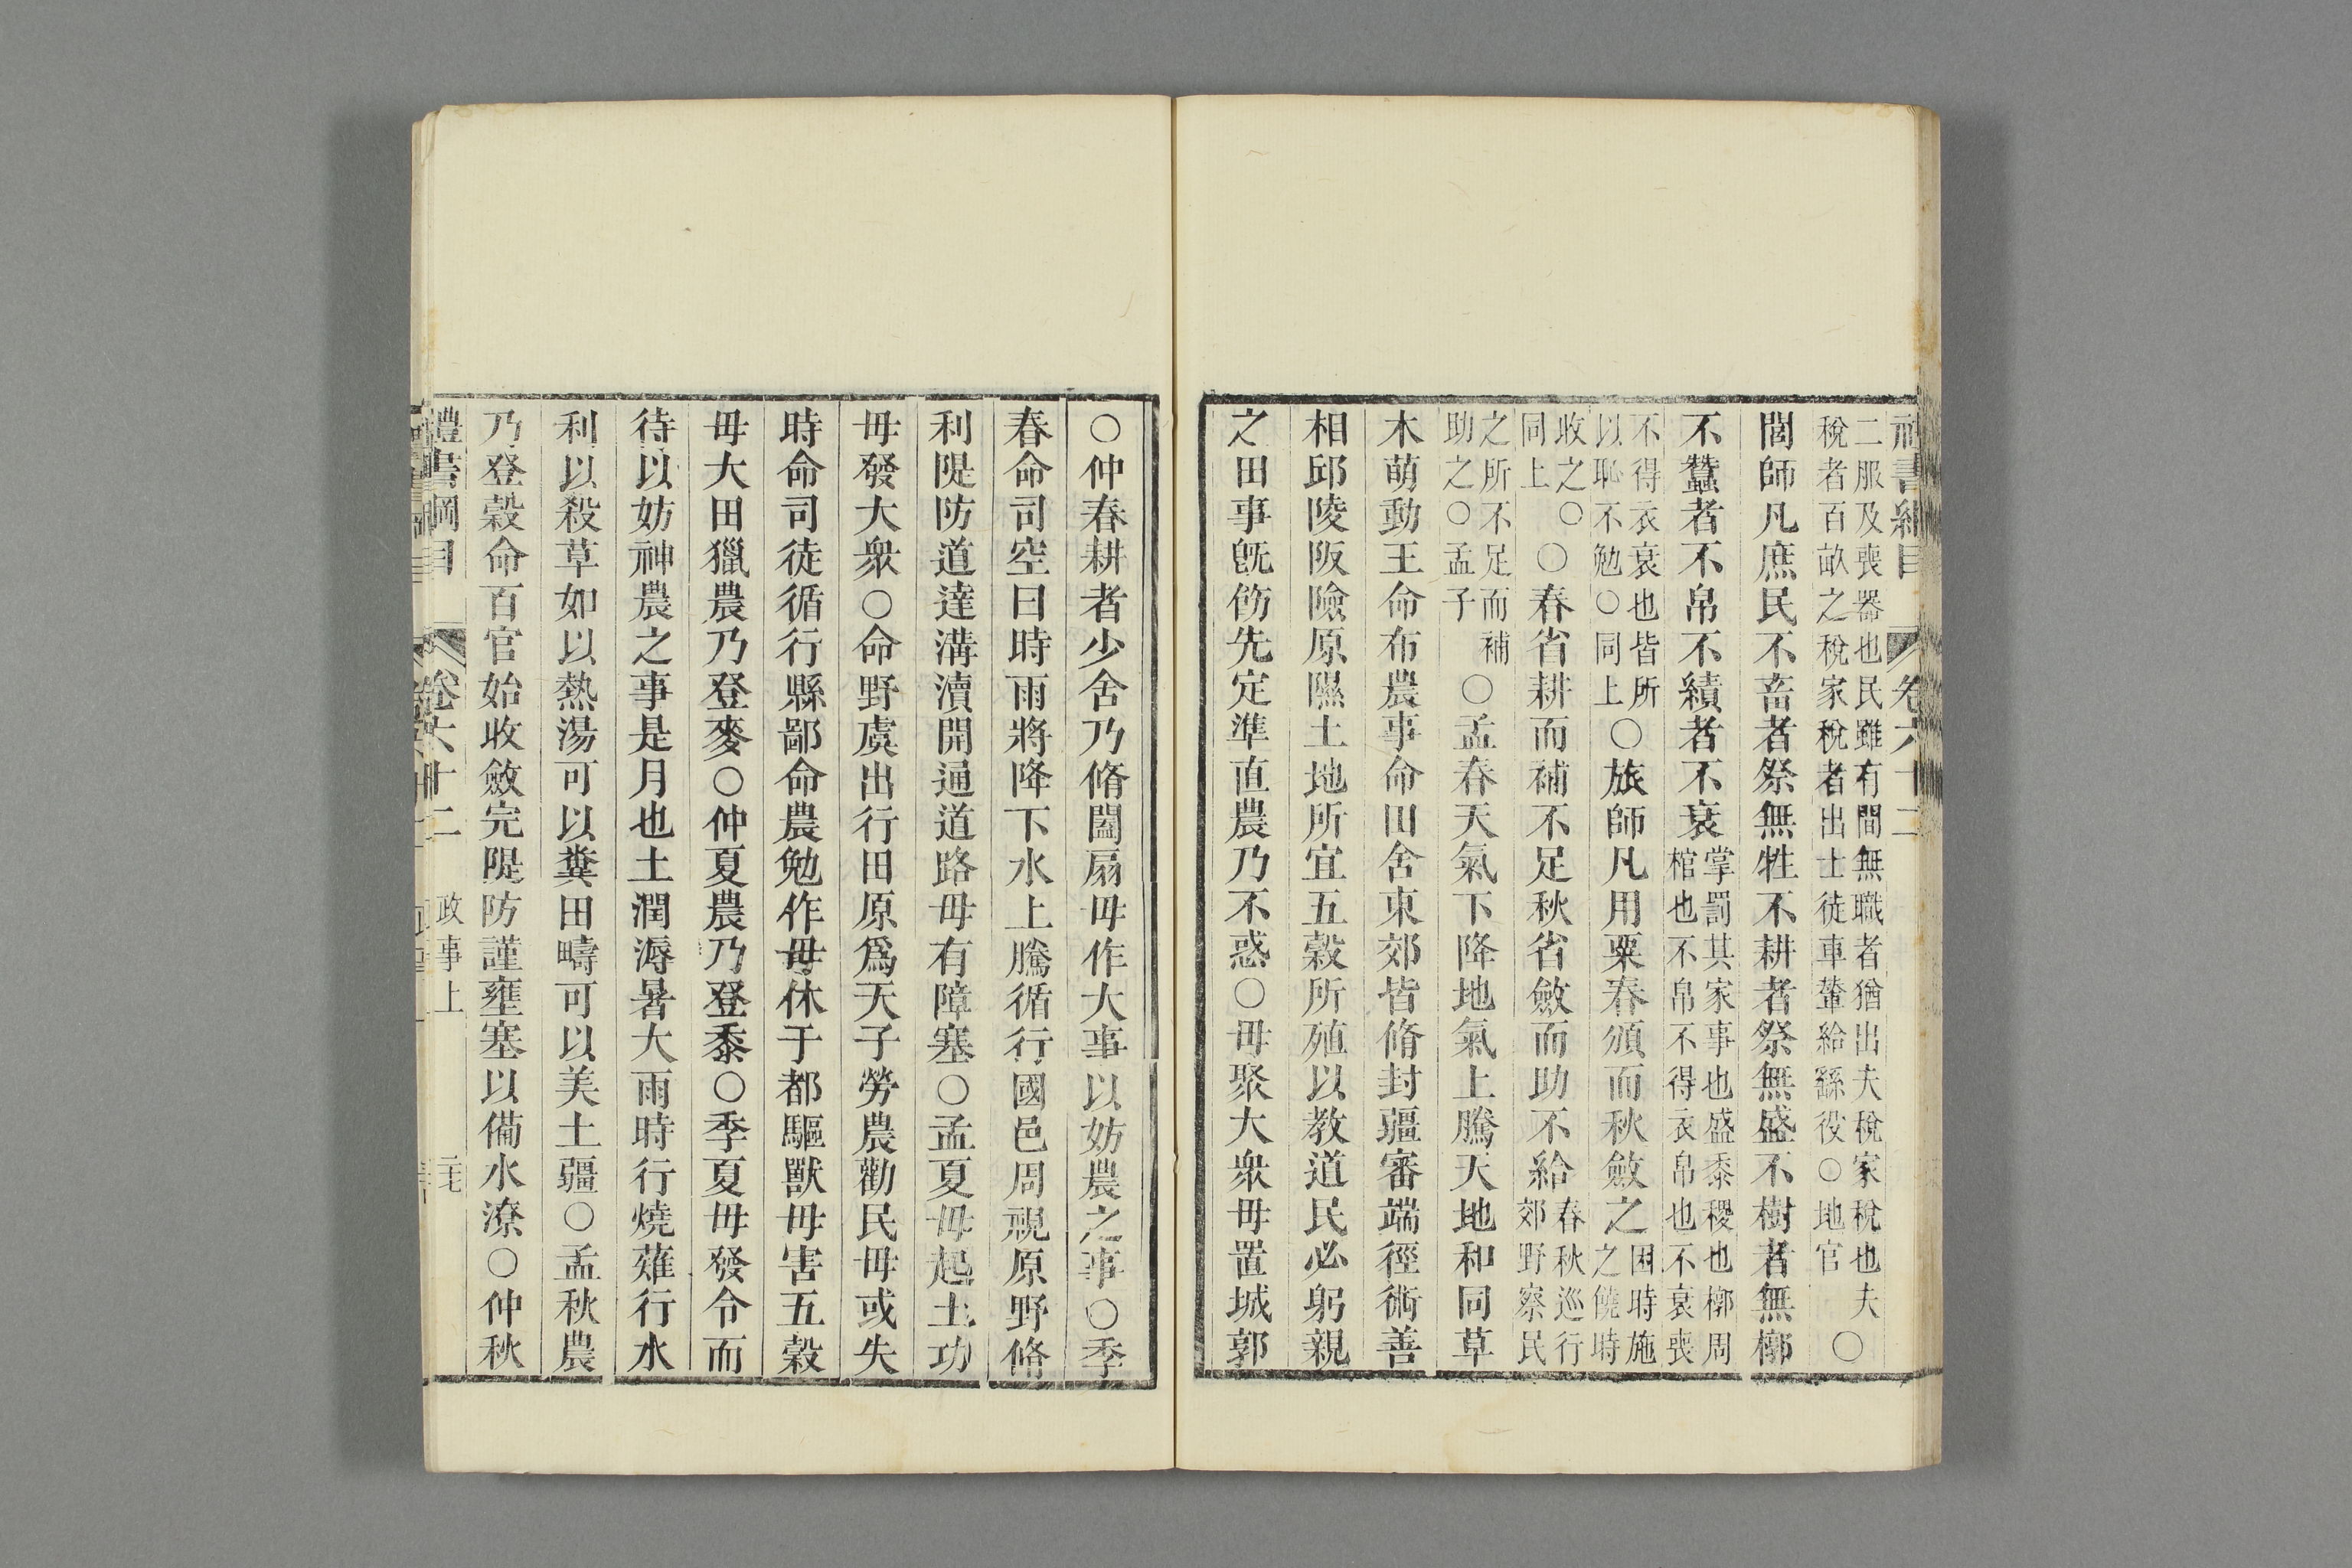 二服及喪器也民雖有間無職者猶出夫稅家稅也夫
稅者百畝之稅家稅者出士徒車輦給繇役○地官
○
閭師凡庶民不畜者祭無牲不耕者祭無盛不樹者無槨
不蠶者不帛不績者不衰
掌罰其家事也盛黍稷也槨周
棺也不帛不得衣帛也不衰喪
不得衣衰也皆所
以恥不勉○同上
○旅師凡用粟春頒而秋斂之
困時施
之饒時
收之○
同上
○春省耕而補不足秋省斂而助不給
春秋巡行
郊野察民
之所不足而補
助之○孟子
○孟春天氣下降地氣上騰天地和同草
木萌動王命布農事命田舍東郊皆脩封疆審端徑術善
相邱陵阪險原隰土地所宜五穀所殖以教道民必躬親
之田事旣飭先定準直農乃不惑○毋聚大衆毋置城郭
○仲春耕者少舍乃脩闔扇毋作大事以妨農之事○季
春命司空曰時雨將降下水上騰循行國邑周視原野脩
利隄防道達溝瀆開通道路毋有障塞○孟夏毋起土功
毋發大衆○命野虞出行田原爲天子勞農勸民毋或失
時命司徒循行縣鄙命農勉作毋休于都驅獸毋害五穀
毋大田獵農乃登麥○仲夏農乃登黍○季夏毋發令而
待以妨神農之事是月也土潤溽暑大雨時行燒薙行水
利以殺草如以熱湯可以糞田疇可以美土疆○孟秋農
乃登穀命百官始收斂完隄防謹壅塞以備水潦○仲秋
禮書綱目 卷六十二 政事上